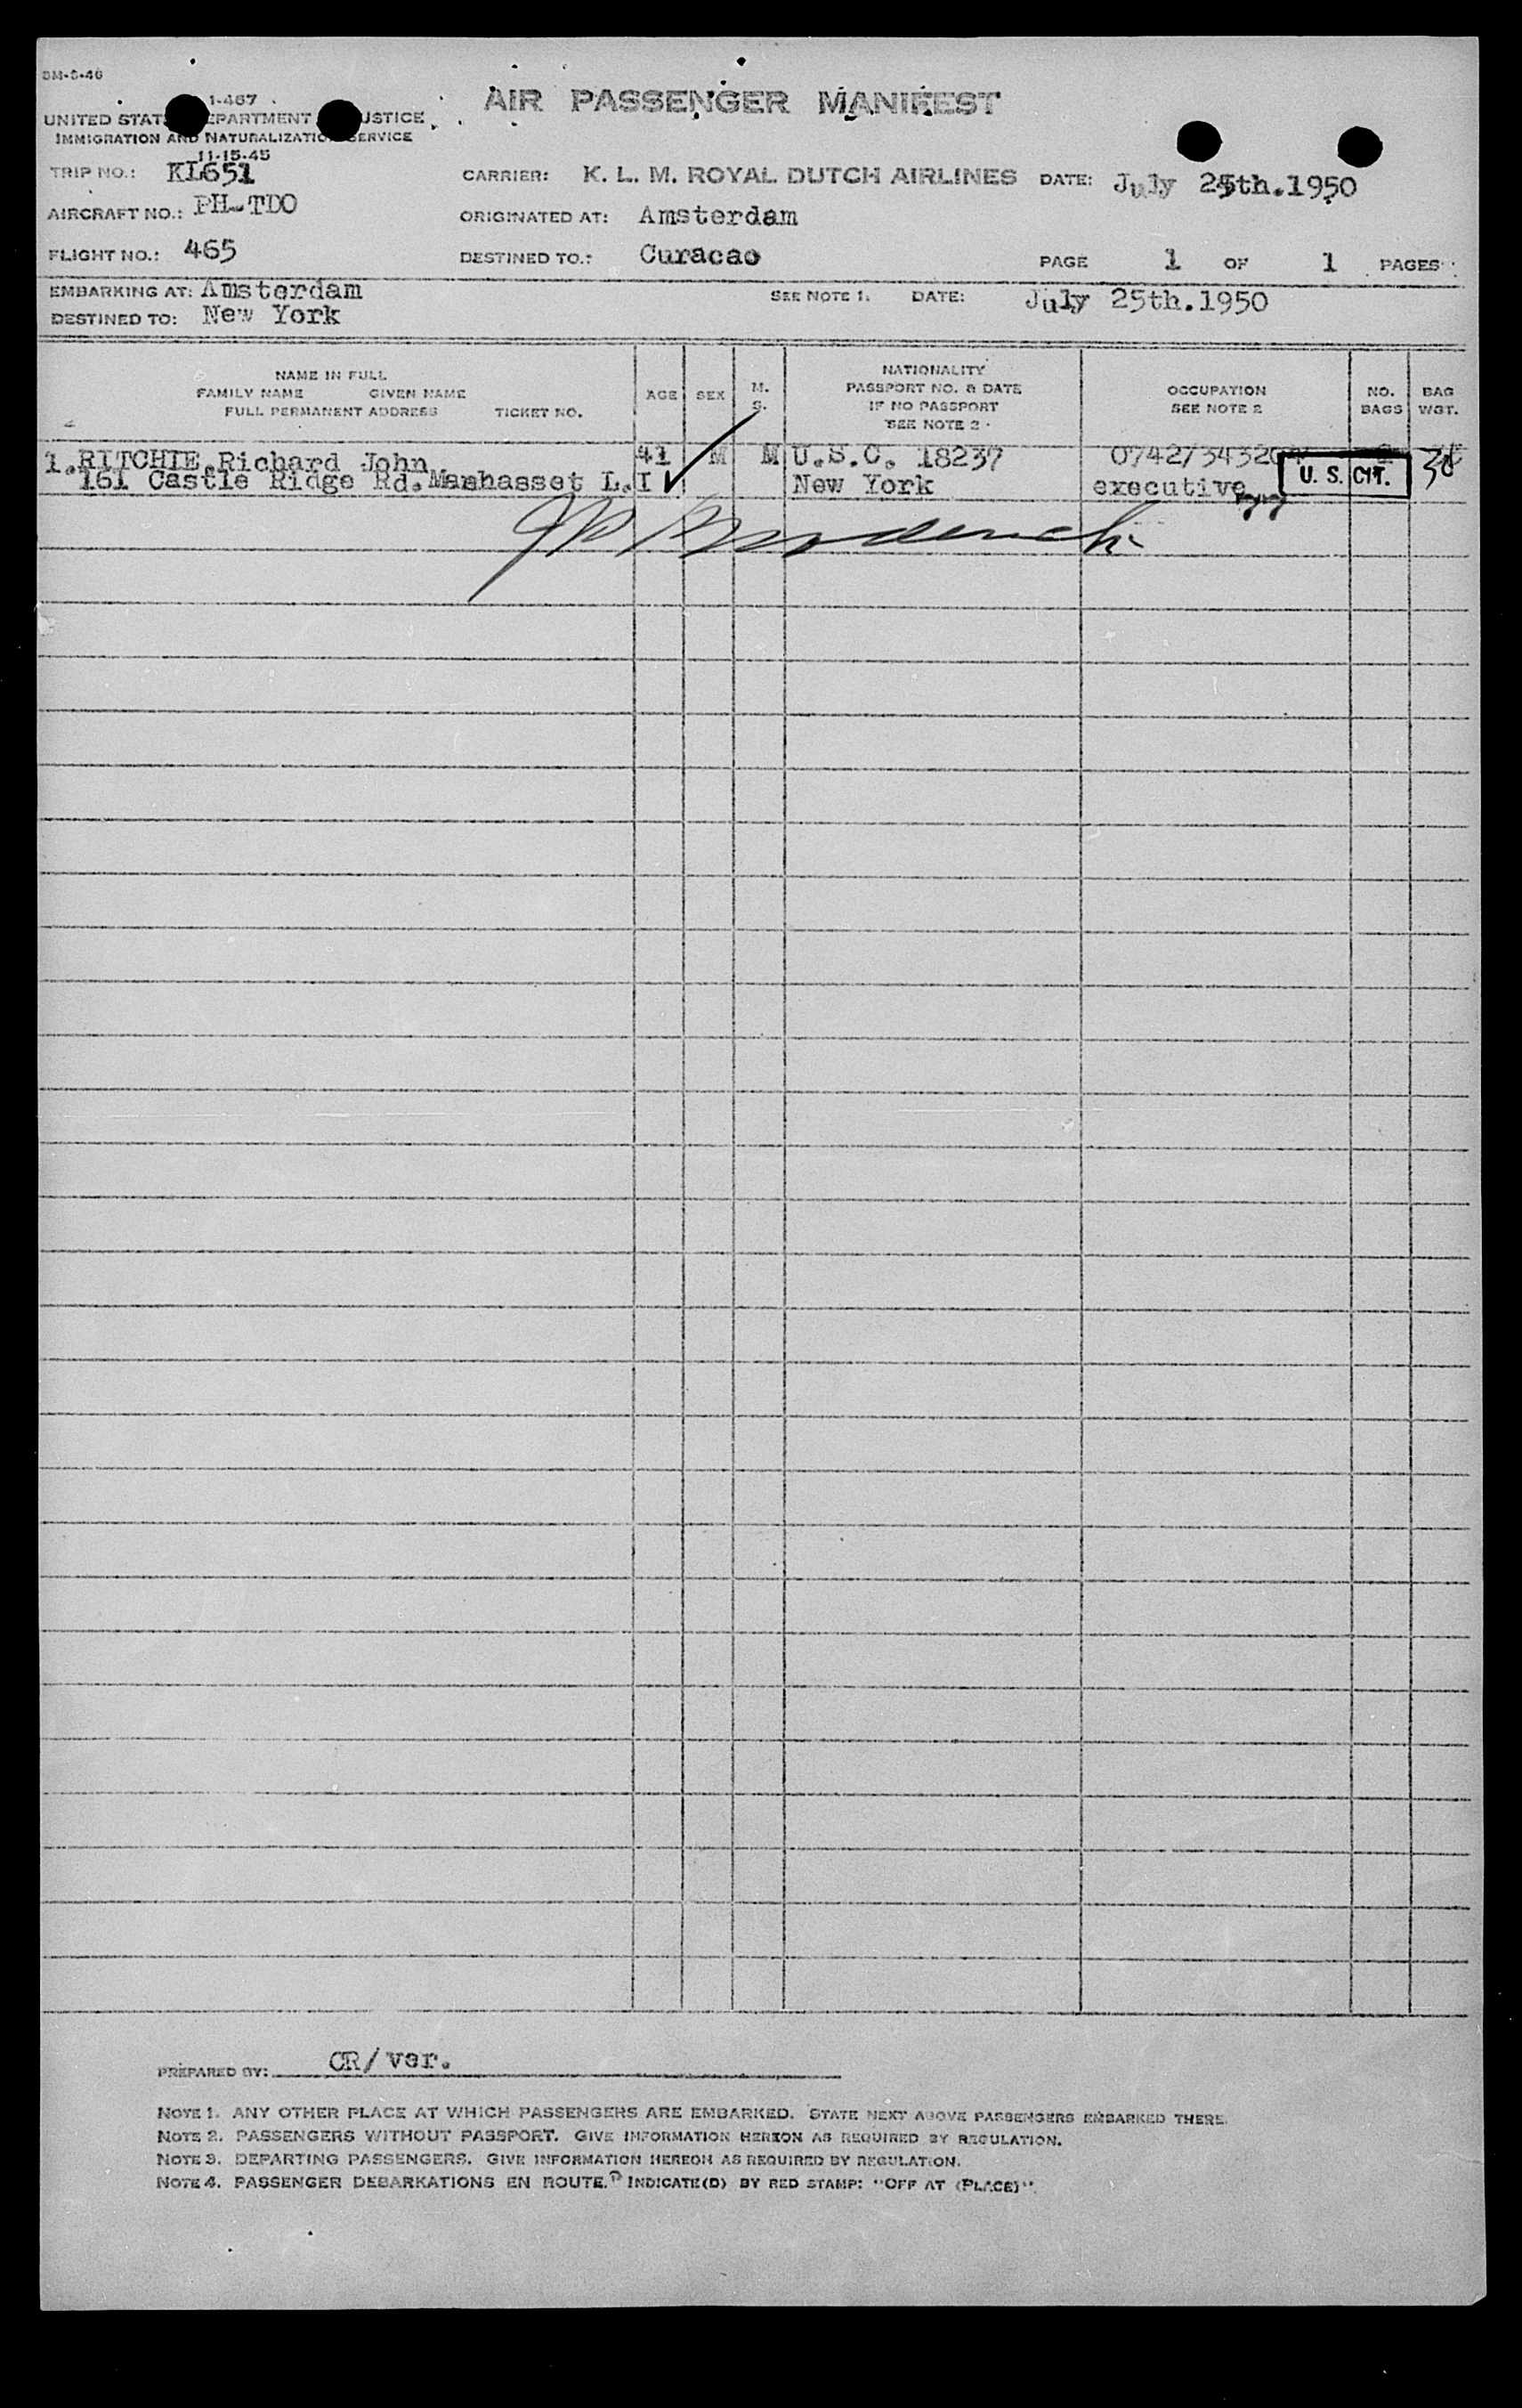 AIR PASSENGER MANIFEST
I-467
UNITED STATES DEPARTMENT OF JUSTICE
IMMIGRATION AND NATURALIZATION SERVICE
11-15-45
TRIP NO.: KL651 CARRIER: K. L. M. ROYAL DUTCH AIRLINES DATE: July 25th.1950
AIRCRAFT NO.: PH-TDO ORIGINATED AT: Amsterdam
FLIGHT NO.: 465 DESTINED TO.: Curacao PAGE 1 OF 1 PAGES
EMBARKING AT: Amsterdam SEE NOTE 1. DATE: July 25th.1950
DESTINED TO: New York
NAME IN FULL
FAMILY NAME GIVEN NAME
FULL PERMANENT ADDRESS TICKET NO.
AGE
SEX
M.
S.
NATIONALITY
PASSPORT NO. & DATE
IF NO PASSPORT
SEE NOTE 2
OCCUPATION
SEE NOTE 2
NO.
BAGS
BAG
WGT.
1.RITCHIE.Richard John 41 M M U.S.C. 18237
161 Castle Ridge Rd.Manhasset L.I New York executive U. S. CIT. 38
PREPARED BY: CR/ver.
NOTE 1. ANY OTHER PLACE AT WHICH PASSENGERS ARE EMBARKED. STATE NEXT ABOVE PASSENGERS EMBARKED THERE.
NOTE 2. PASSENGERS WITHOUT PASSPORT. GIVE INFORMATION HEREON AS REQUIRED BY REGULATION.
NOTE 3. DEPARTING PASSENGERS. GIVE INFORMATION HEREON AS REQUIRED BY REGULATION.
NOTE 4. PASSENGER DEBARKATIONS EN ROUTE. INDICATE(D) BY RED STAMP: "OFF AT (PLACE)".